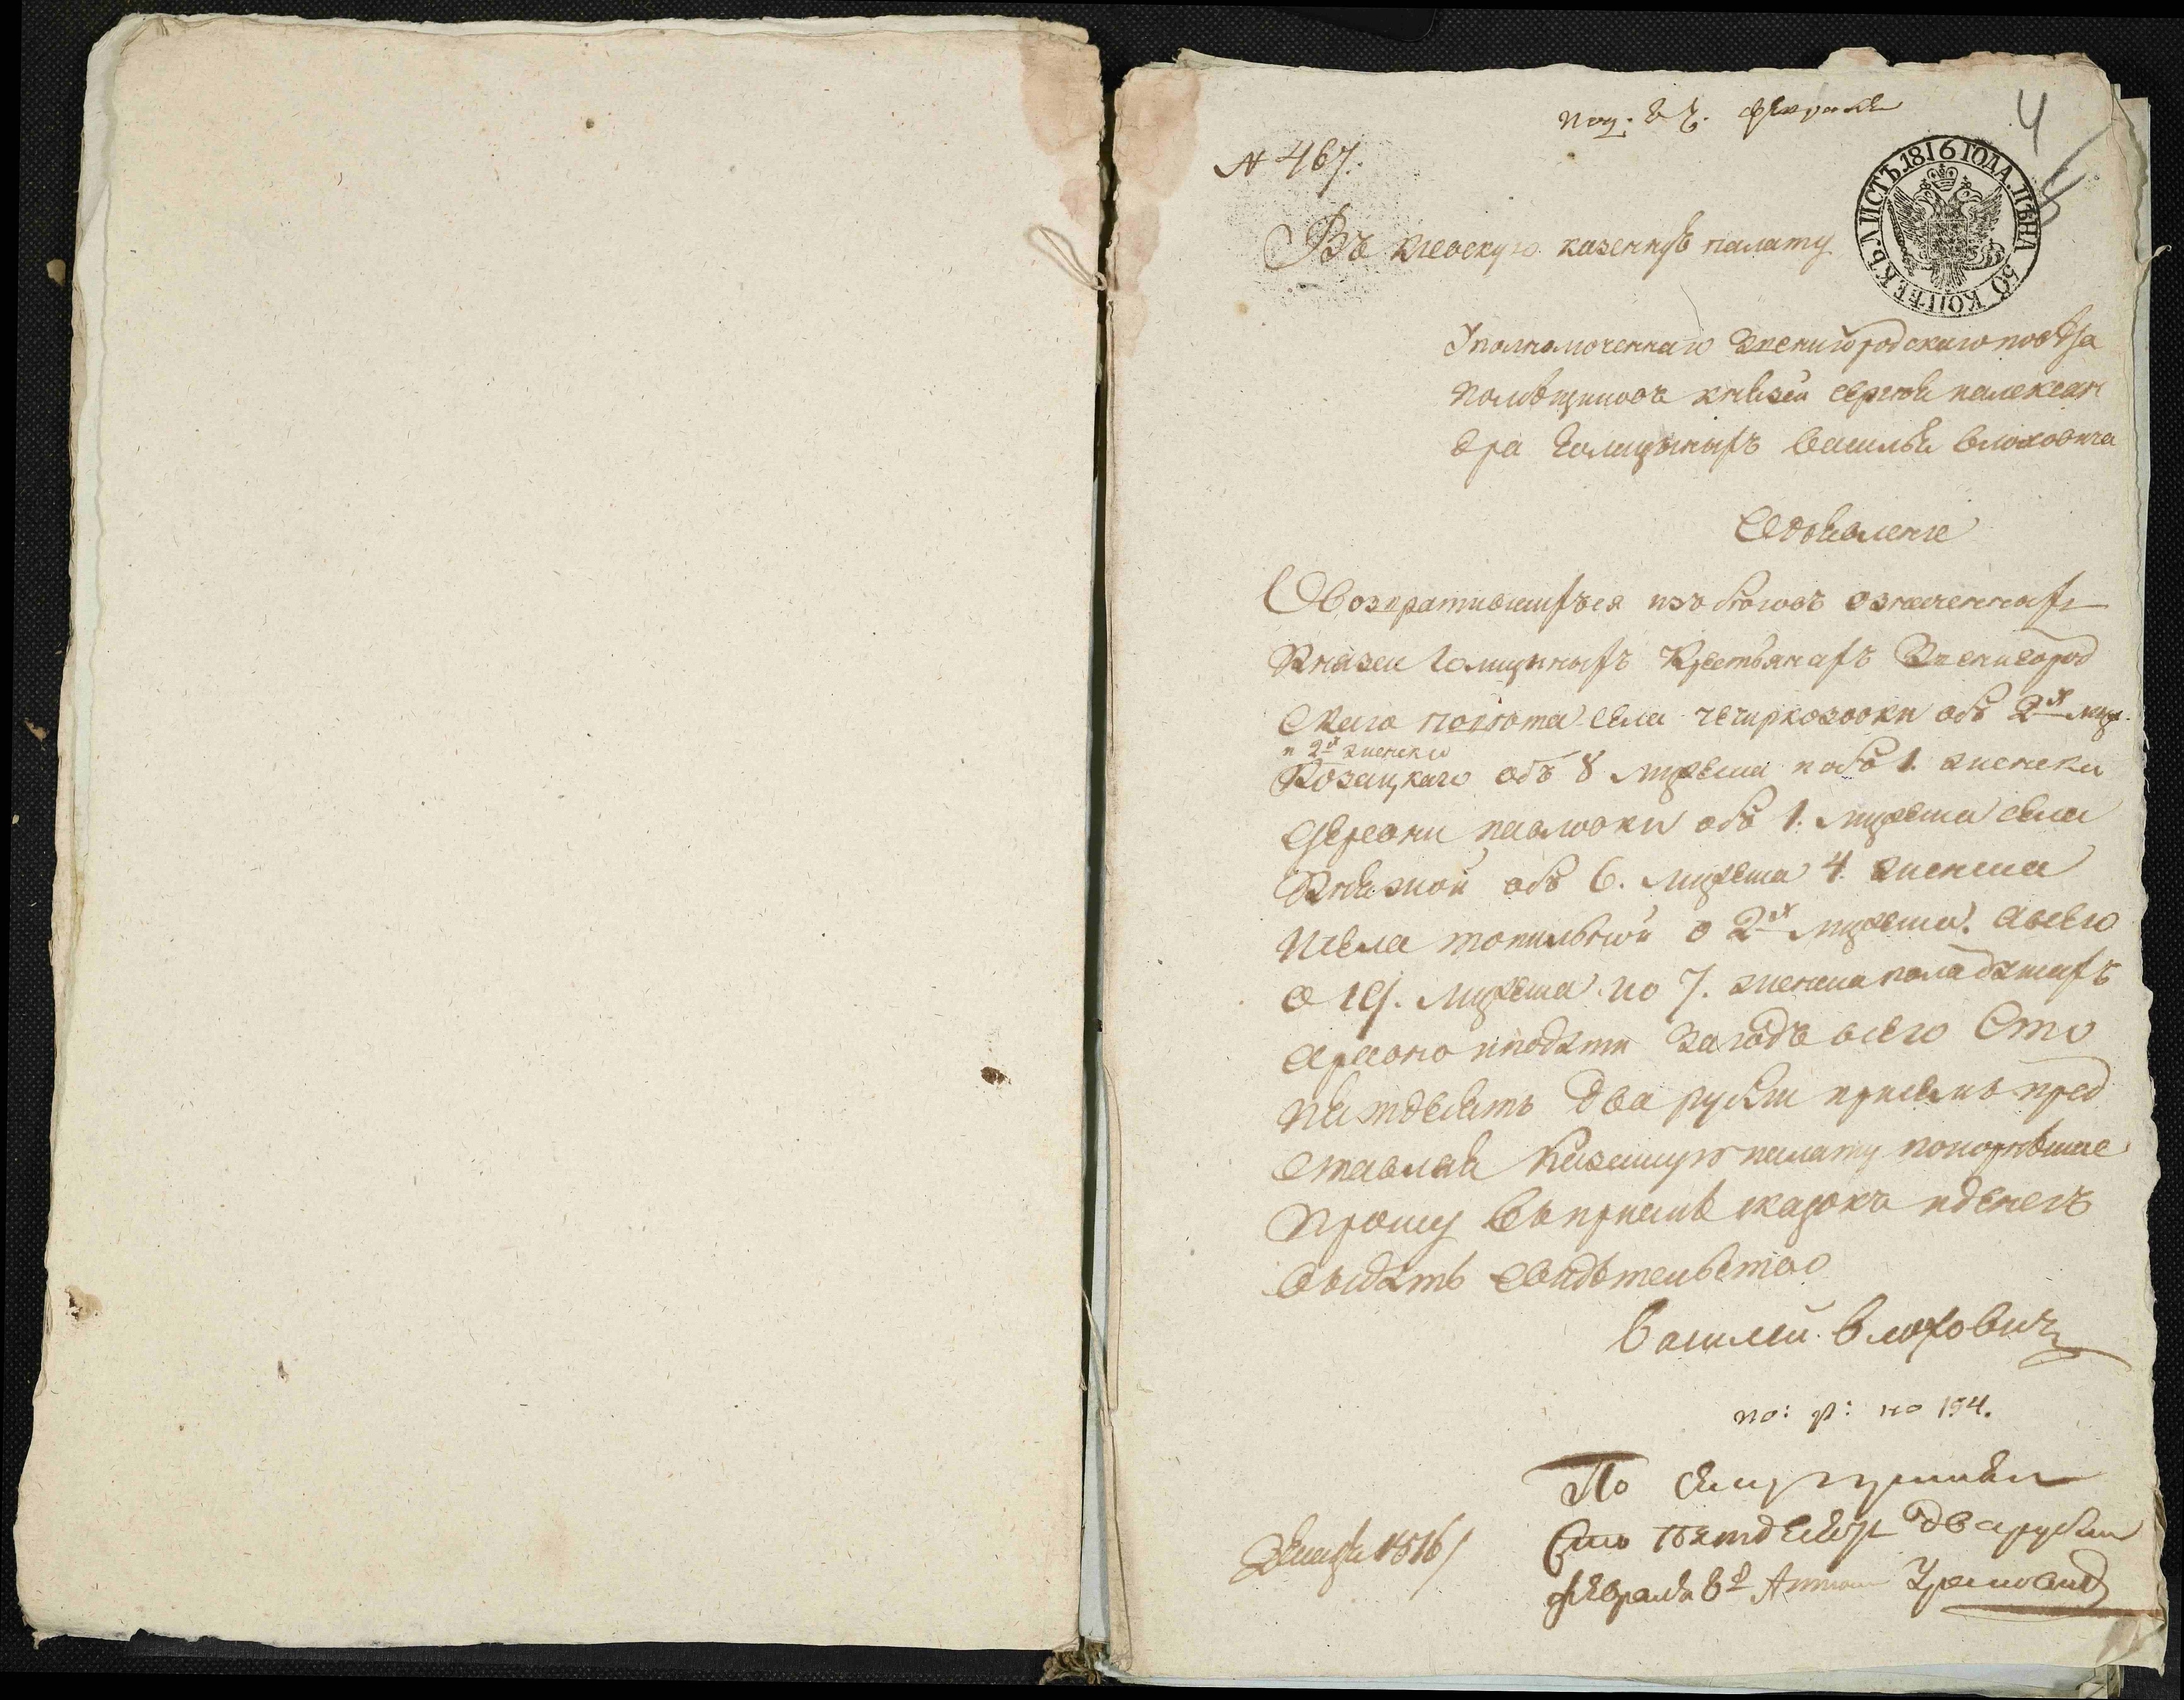 Пол: 8 г. февраля
4
№ 467.
ЛИСТЪ. 1816 ГОДА. ЦѢНА 50 КОПѢЕКЪ.
Въ киевскую казенную палату
Уполномоченнаго Звенигородского повѣта
помѣщиковъ князей Сергѣя иалексан
дра Голицыныхъ василья влоховича
Объявленіе
Овозвратившихъся изъ бѣговъ означенныхъ
Князеи Голицыныхъ Крестьянахъ Звенигород
скаго повѣта села чечиркозовки объ 2х муж.
и 2х женски
Козацкаго объ 8 мужеска иобъ 1. женски
деревни павловки объ 1. мужеска села
Княжой объ 6. мужеска 4. женска
исела топильной о 2х мужеска. авсего
о 19. мужеска ио 7. женска поладушахъ
равно иподати загодъ всего Сто
пятдесятъ два рубли присемъ пред
ставляя Казенную палату попокорнѣише
прошу въ приемѣ сказокъ иденегъ
выдать свидѣтельство
Василий Влохович
по: р: но 194.
По сему принял
Сто пятдесят два рубли
февраля 8д
1816